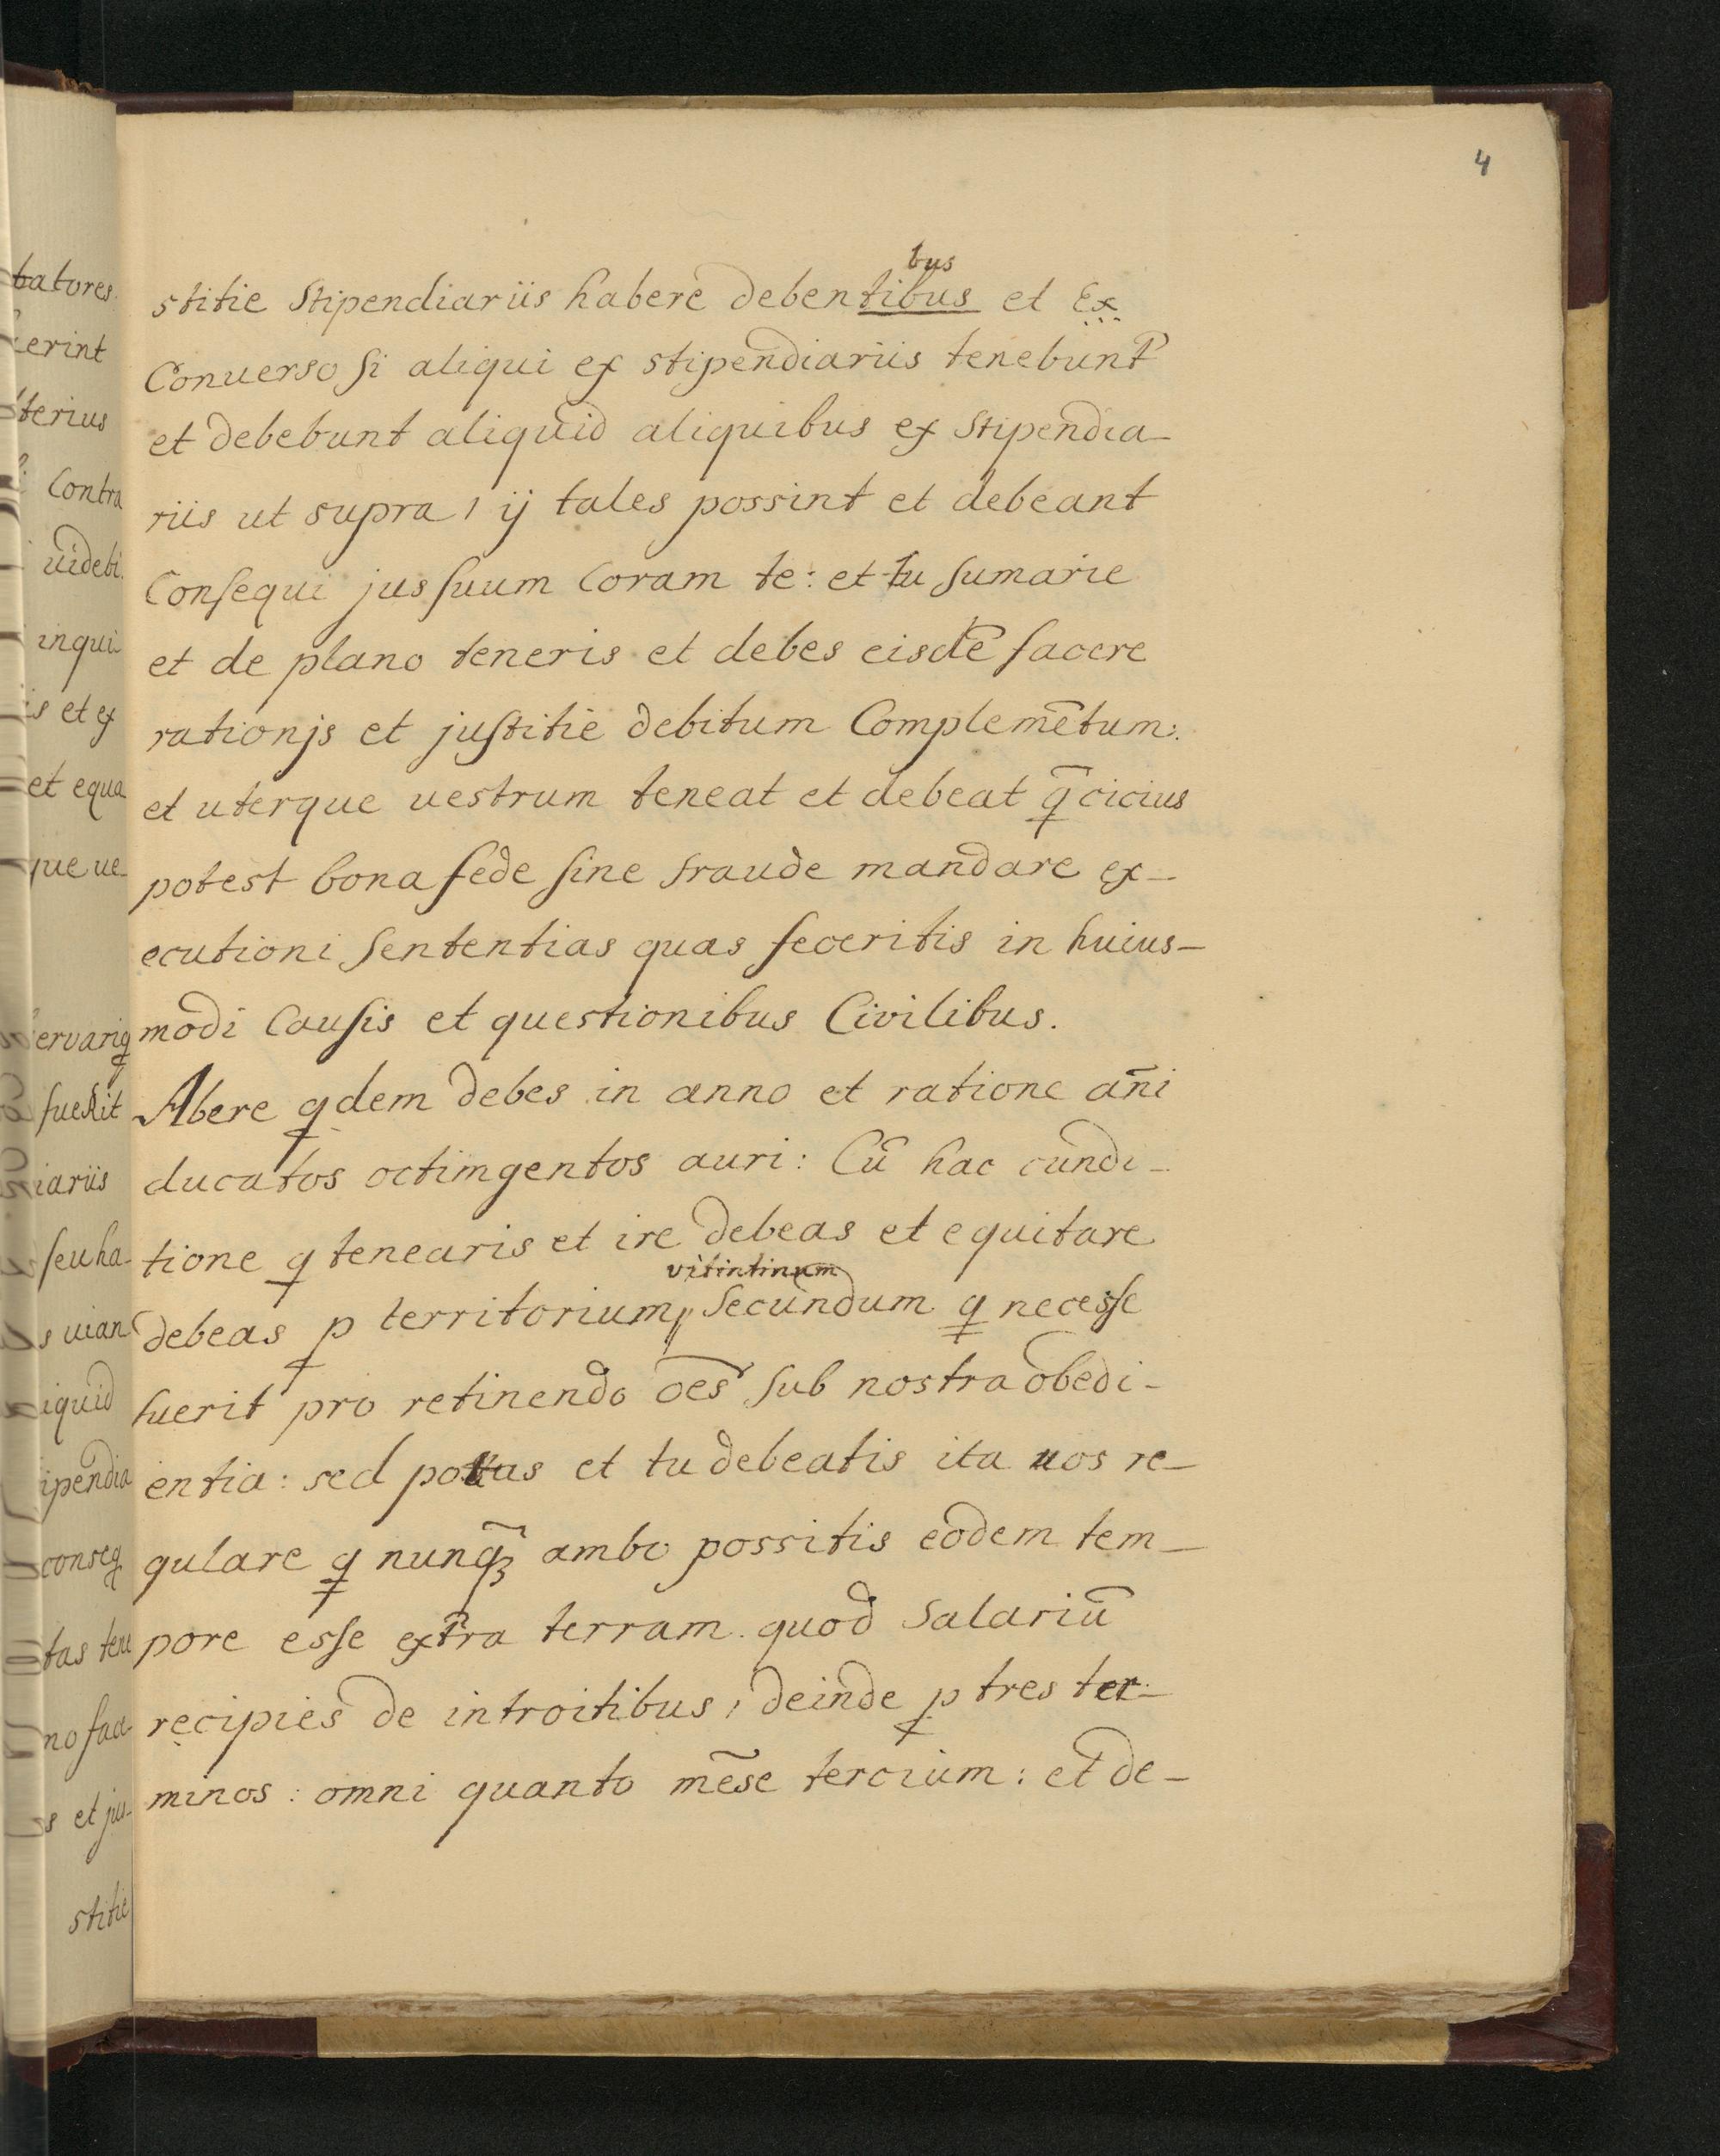 4
bus
stitie Stipendiariis habere debentibus et Ex
Conuerso si aliqui ex stipendiariis tenebunt
et debebunt aliquid aliquibus ex Stipendia-
riis ut supra, ij tales possint et debeant
Consequi jus suum Coram te: et tu sumarie
et de plano teneris et debes eisdē facere
rationjs et justitie debitum Complemētum:
et uterque uestrum teneat et debeat q̄ cicius
potest bona fede sine fraude mandare ex-
ecutioni sententias quas feceritis in huius-
modi Causis et questionibus Civilibus.
Abere qdem debes in anno et ratione an̄i
ducatos octimgentos auri: Cū hac cundi-
tione q tenearis et ire debeas et equitare
vitintinum
debeas p territorium, secundum q necesse
fuerit pro retinendo oēs sub nostra obedi-
entia: sed et tu debeatis ita uos re-
gulare q nunq̄ ambo possitis eodem tem-
pore esse extra terram. quod Salariū
recipies de introitibus, deinde p tres ter-
minos: omni quanto mēse tercium: et de-
batores
erint
terius
Contra
uidebi
inqui
is et ex
et equa
que ue-
ervariq
fuerit
iariis
seu ha-
s uian
iquid
ipendia
conseq
tas tene
no faa-
s et jus-
stitie